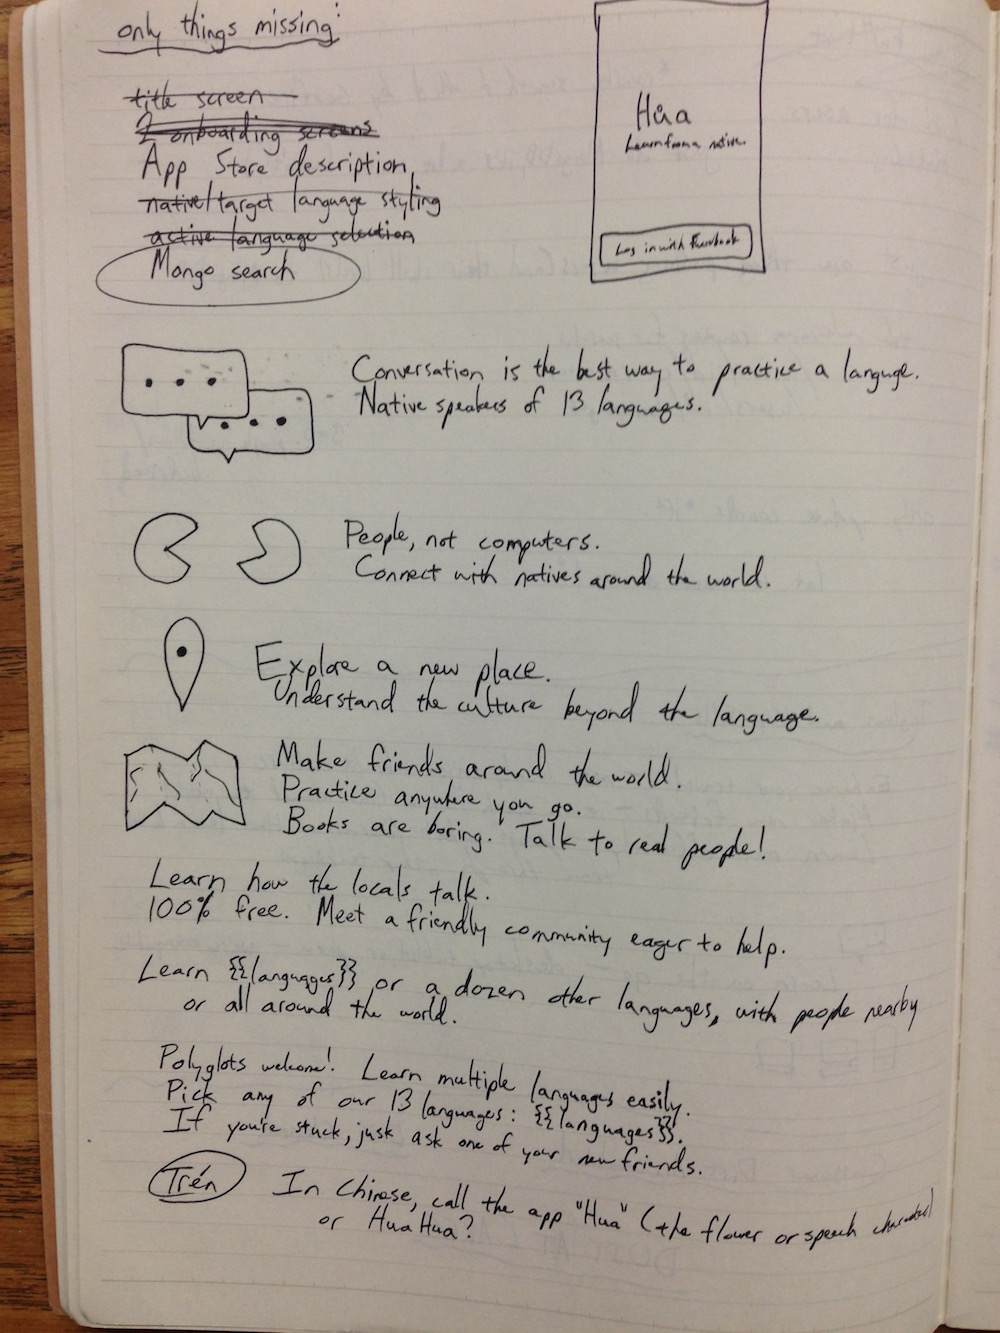 only things missing:
title screen
2 onboarding screens
App Store description
native/target language styling
active language selection
Mongo search
Hůa
Learn from a native.
Log in with Facebook
Conversation is the best way to practice a languge.
Native speakers of 13 languages.
People, not computers.
Connect with natives around the world.
Explore a new place.
Understand the culture beyond the language.
Make friends around the world.
Practice anywhere you go.
Books are boring. Talk to real people!
Learn how the locals talk.
100% free. Meet a friendly community eager to help.
Learn {{languages}} or a dozen other languages, with people nearby
or all around the world.
Polyglots welcome! Learn multiple languages easily.
Pick any of our 13 languages: {{languages}}.
If you're stuck, just ask one of your new friends.
Trén
In Chinese, call the app "Hua" (the flower or speech character)
or HuaHua?